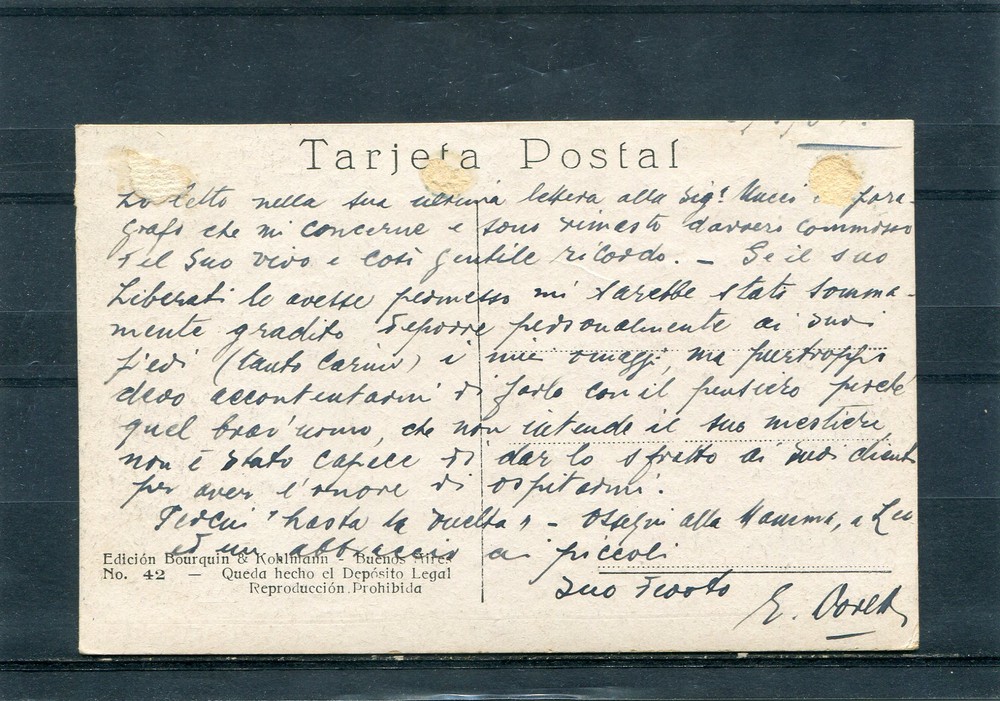 Tarjeta Postal
Ho letto nella sua ultima lettera alla Sigª Mucci il para-
grafo che mi concerne e sono rimasto davvero commosso
del suo vivo e così gentile ricordo. — Se il suo
Liberati lo avesse permesso mi sarebbe stato somma-
mente gradito deporre personalmente ai suoi
piedi (tanto carini) i miei omaggi, ma purtroppo
devo accontentarmi di farlo con il pensiero perché
quel brav'uomo, che non intende il suo mestiere,
non è stato capace di dar lo sfratto ai suoi clienti
per aver l'onore di ospitarmi.
Perciò "hasta la vuelta" — Ossequi alla Mamma, a Lei
ed un abbraccio ai piccoli
suo devoto
E.
Edición Bourquin & Kohlmann - Buenos Aires
No. 42 — Queda hecho el Depósito Legal
Reproducción Prohibida